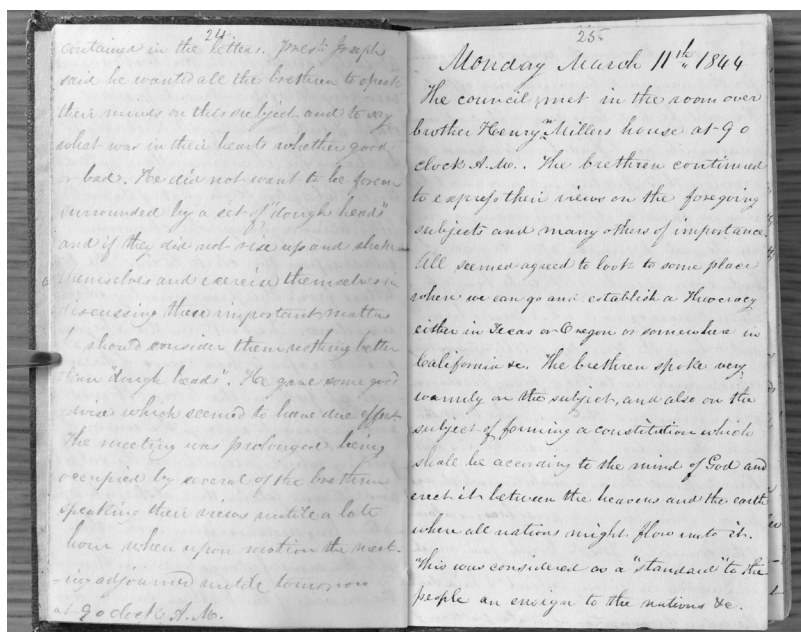 24
contained in the letters. Prest. Joseph
said he wanted all the brethren to speak
their minds on this subject and to say
what was in their hearts whether good
or bad. He did not want to be forever
surrounded by a set of "dough heads"
and if they did not rise up and shake
themselves and exercise themselves in
discussing these important matters
he should consider them nothing better
than "dough heads". He gave some good
advice which seemed to have due effect.
The meeting was prolonged being
occupied by several of the brethren
speaking their views untile a late
hour when upon motion the meet-
-ing adjourned untile tomorrow
at 9 o clock A.M.
25
Monday March 11th 1844
The council met in the room over
brother Henry Millers house at 9 o
clock A.M. The brethren continued
to express their views on the foregoing
subjects and many others of importance.
All seemed agreed to look to some place
where we can go and establish a Theocracy
either in Texas or Oregon or somewhere in
California &c. The brethren spoke very
warmly on the subject, and also on the
subject of forming a constitution which
shall be according to the mind of God and
erect it between the heavens and the earth
where all nations might flow unto it.
This was considered as a "standard" to the
people an ensign to the nations &c.